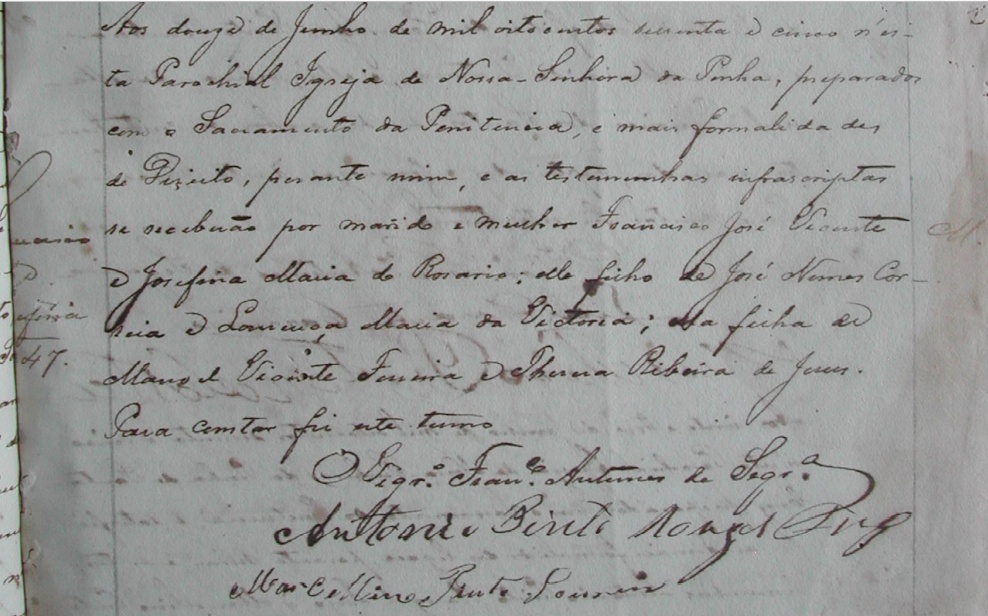 Aos douze de Junho de mil oitocentos secenta e cinco n'es-
ta Parochial Igreja de Nossa Senhora da Penha, preparados
com o Sacramento da Penitencia, e mais formalidades
de Direito, perante mim, e as testemunhas infrascriptas
se receberão por marido e mulher Francisco José Vicente
e Josefina Maria do Rosario; elle filho de José Nunes Cor-
reia e Lourença Maria da Victoria; ella filha de
Manoel Vicente Ferreira e Thereza Ribeira de Jesus.
Para constar fiz este termo
O Vigr.º Fran.co Antunes de Seqr.a
Antonio Bento
Marcellino Pinto
47.